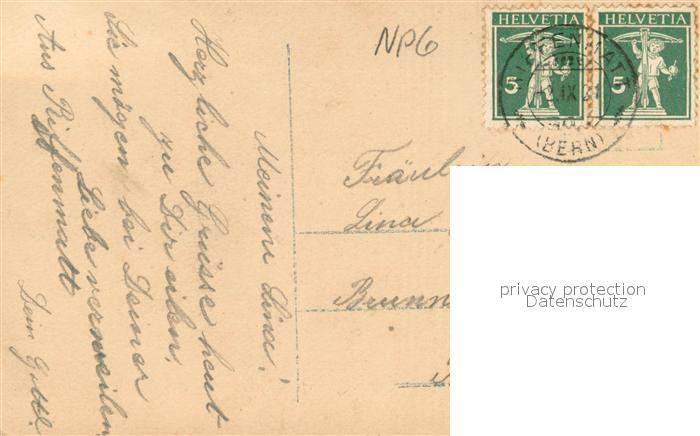 NP6
HELVETIA
HELVETIA
5
5
(BERN)
Meinem Lina!
Herzliche Grüsse heut
zu Dir eilen,
Sie mögen bei Deiner
Liebe verweilen
Aus Riffenmatt
Dein
Fräulein
Lina
privacy protection
Datenschutz